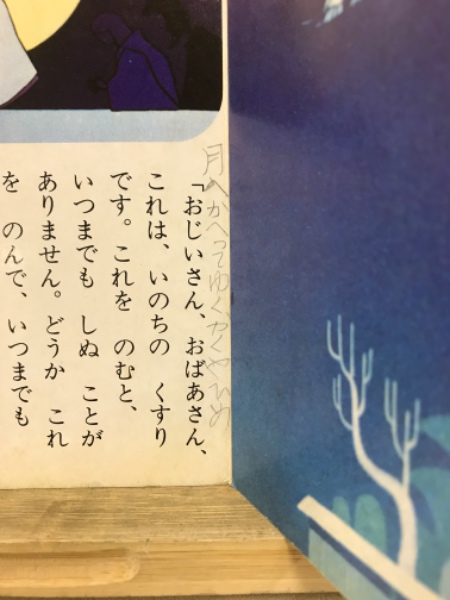 月へかへってゆくかくやひめ
「おじいさん、おばあさん、
これは、いのちの くすり
です。これを のむと、
いつまでも しぬ ことが
ありません。どうか これ
を のんで、いつまでも